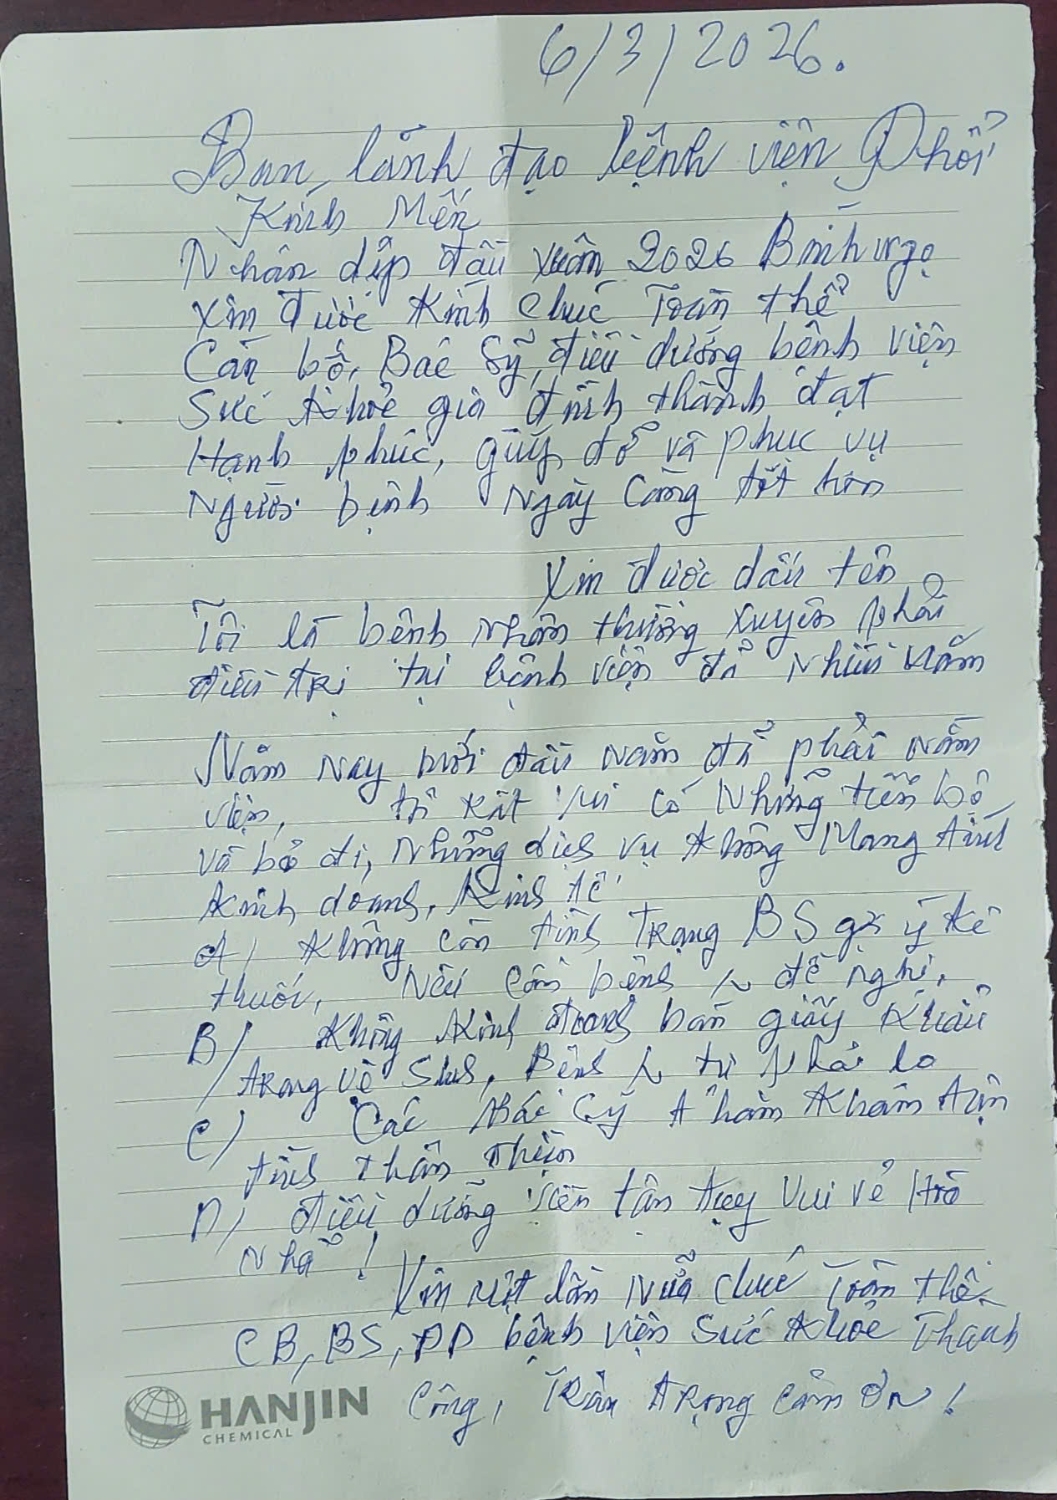 6/3/2026.
Ban lãnh đạo bệnh viện Phổi
Kính Mến
Nhân dịp đầu xuân 2026 Bính ngọ
Xin được Kính chúc Toàn thể
Cán bộ, Bác Sỹ, điều dưỡng bệnh viện
Sức khỏe gia đình thành đạt
Hạnh phúc, giúp đỡ và phục vụ
Người bệnh Ngày Càng tốt hơn
Xin được dấu tên
Tôi là bệnh Nhân thường xuyên phải
điều trị tại bệnh viện đã Nhiều Năm
Năm Nay mới đầu năm đã phải nằm
viện, tôi rất vui có Những tiến bộ
và bỏ đi, Những dịch vụ không Mang tính
Kinh doanh, Kinh tế
A, Không còn tình Trạng BS gợi ý kê
thuốc, Nếu cần bệnh N đề nghị.
B/ Không Kinh doanh bán giấy
trong vệ sinh, Bệnh N tự phải lo
C/ Các Bác Sỹ Thăm Khám tận
tình thân thiện
D/ điều dưỡng viên tận tụy Vui vẻ Hòa
Nhã!
Xin một lần Nữa chúc Toàn thể
CB, BS, ĐD bệnh viện Sức khỏe Thành
Công, Trân Trọng cảm ơn!
HANJIN
CHEMICAL